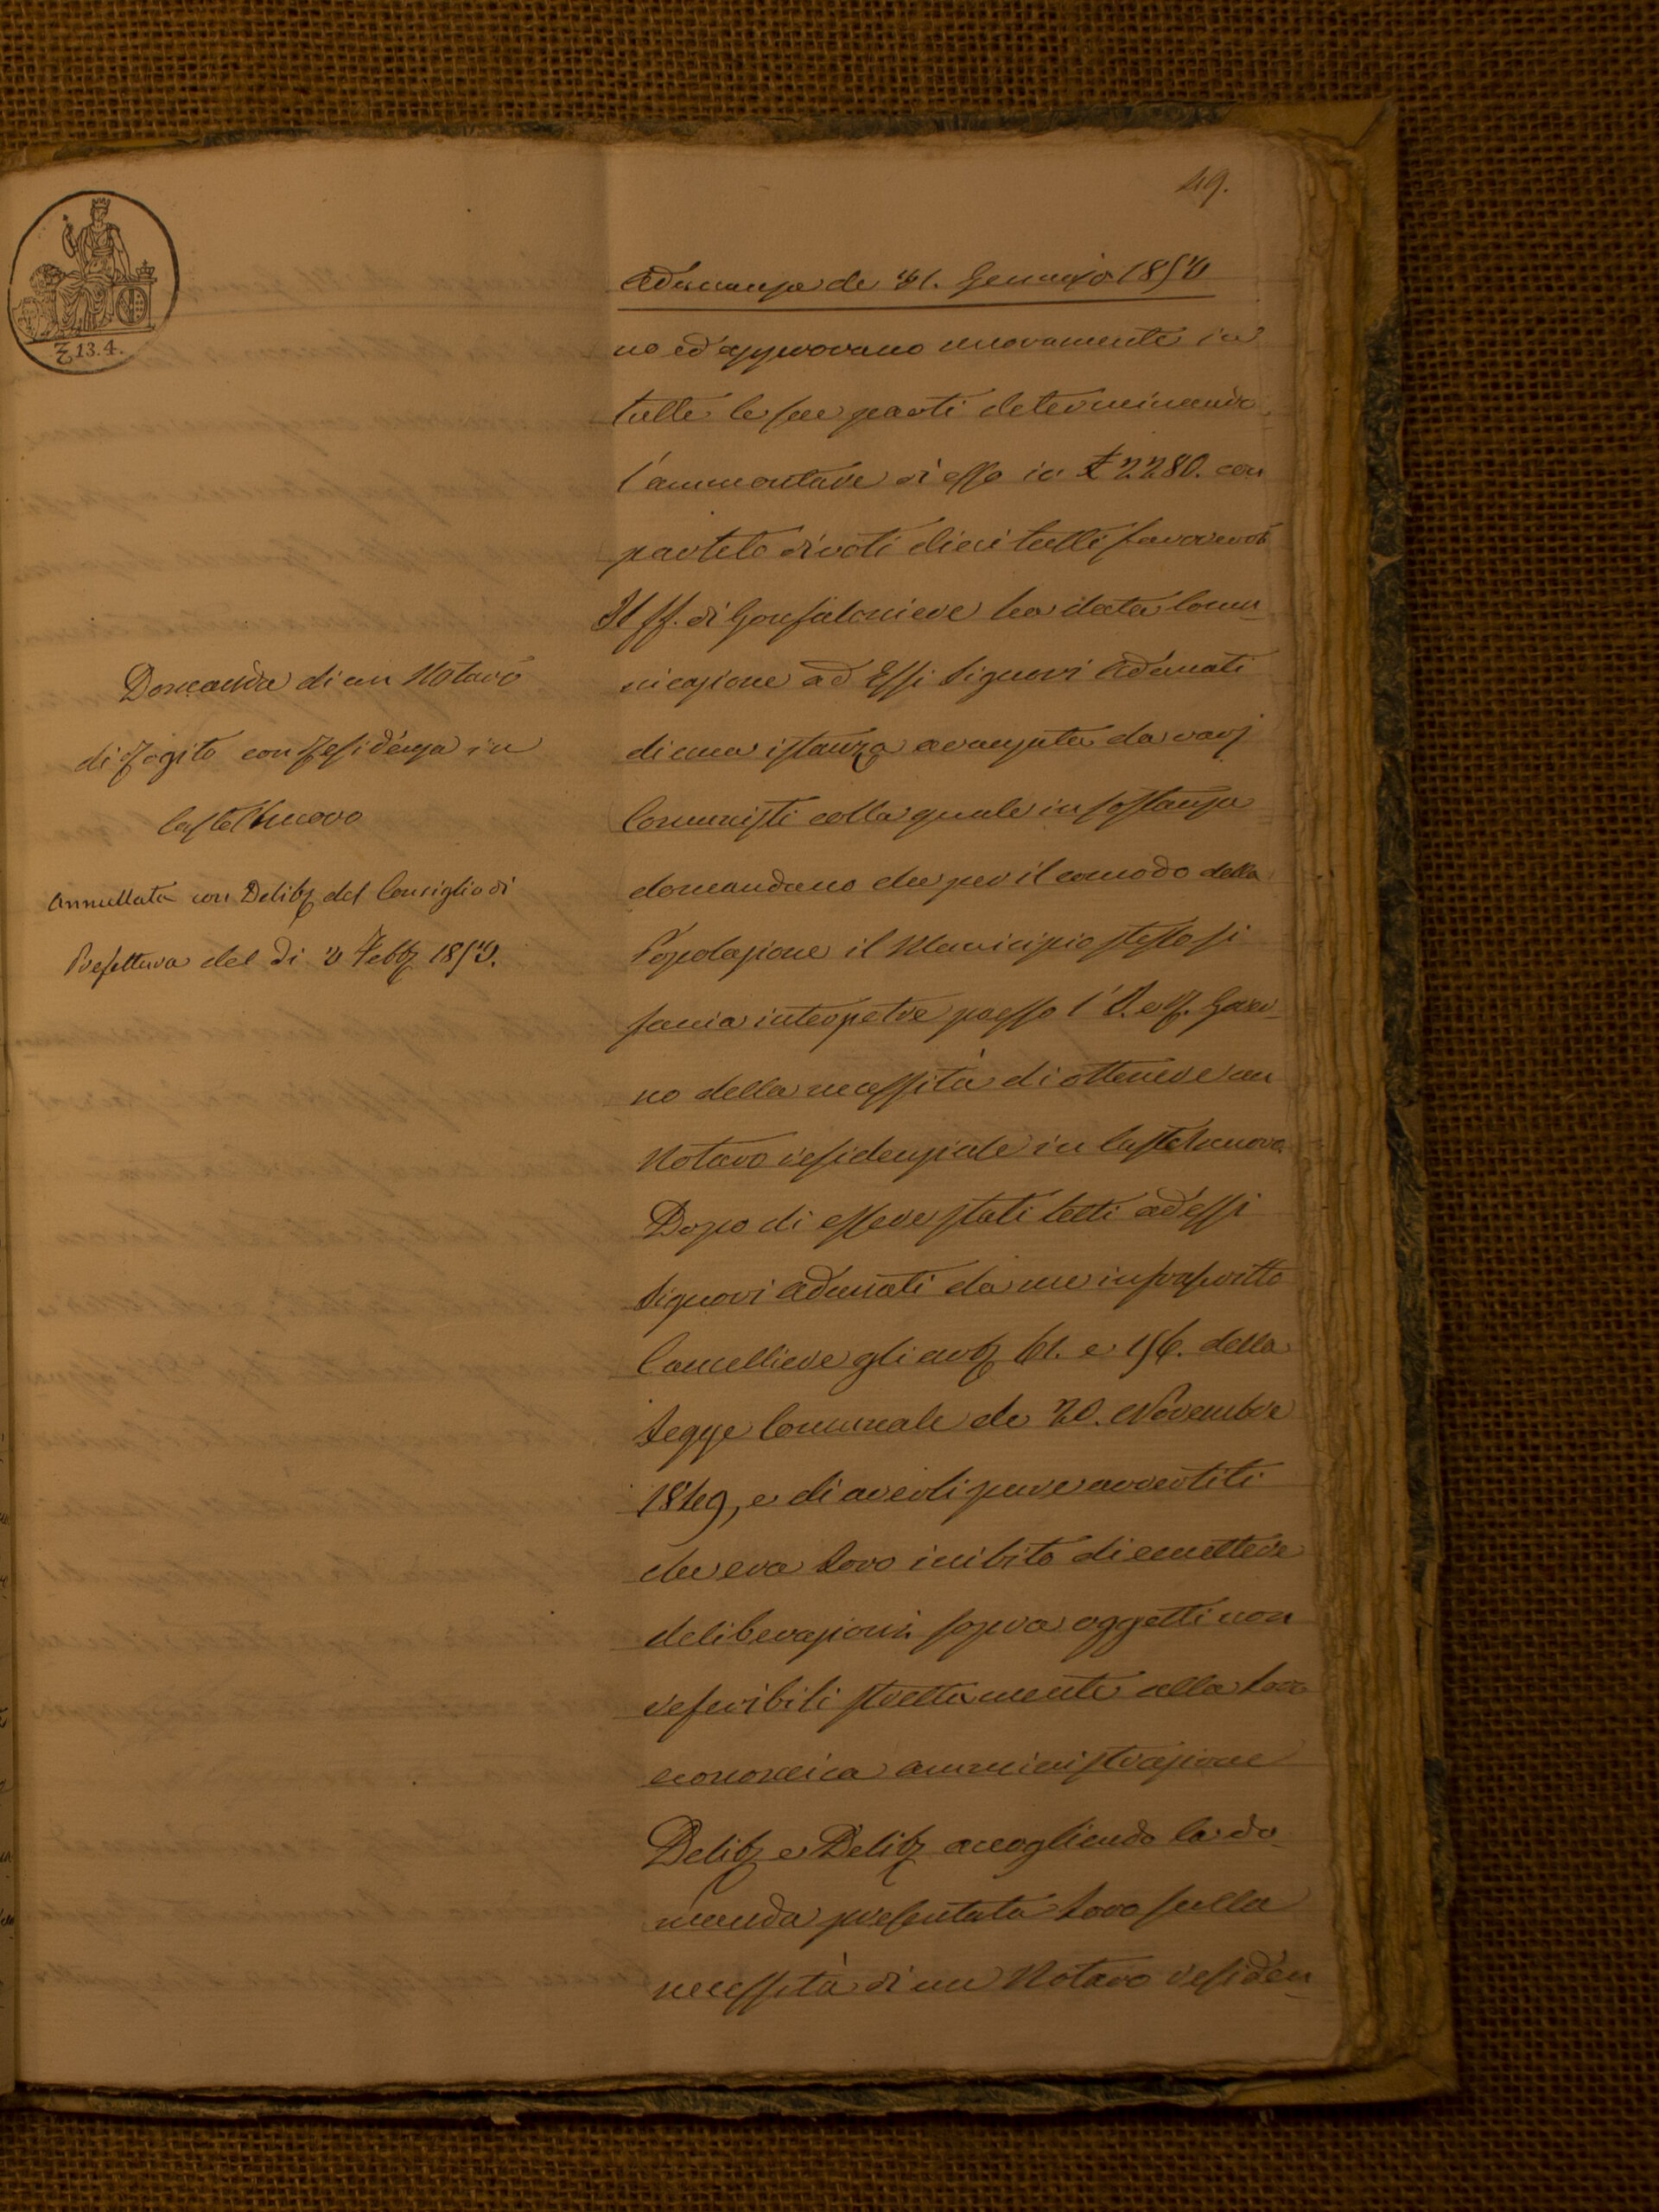 49.
₤ 13.4.
Adunanza de 31. Gennajo 1853
no ed approvano nuovamente in
tutte le sue parti determinando
l'ammontare di esso in £ 2280. con
partito di voti dieci tutti favorevoli
Il ff. di Gonfaloniere ha data Comu_
nicazione ad Essi Signori Adunati
di una istanza avanzata da varj
Comunisti colla quale in sostanza
domandano che per il comodo della
Popolazione il Municipio stesso si
faccia interpetre presso l'I. e R. Gover_
no della necessità di ottenere un
Notaro residenziale in Castelnuovo
Dopo di essere stati letti ad essi
Signori Adunati da me infrascritto
Cancelliere gli art 61. e 156. della
Legge Comunale de 20. Novembre
1849, e di averli pure avvertiti
che era Loro inibito di emettere
deliberazioni sopra oggetti non
referibili strettamente alla Loro
economica amministrazione
Delib e Delib accogliendo la do_
manda presentata Loro sulla
necessità di un Notaro residen_
Domanda di un Notaro
di Rogito con Residenza in
Castelnuovo
Annullata con Delib del Consiglio di
Prefettura del Di 3 Febb 1853.